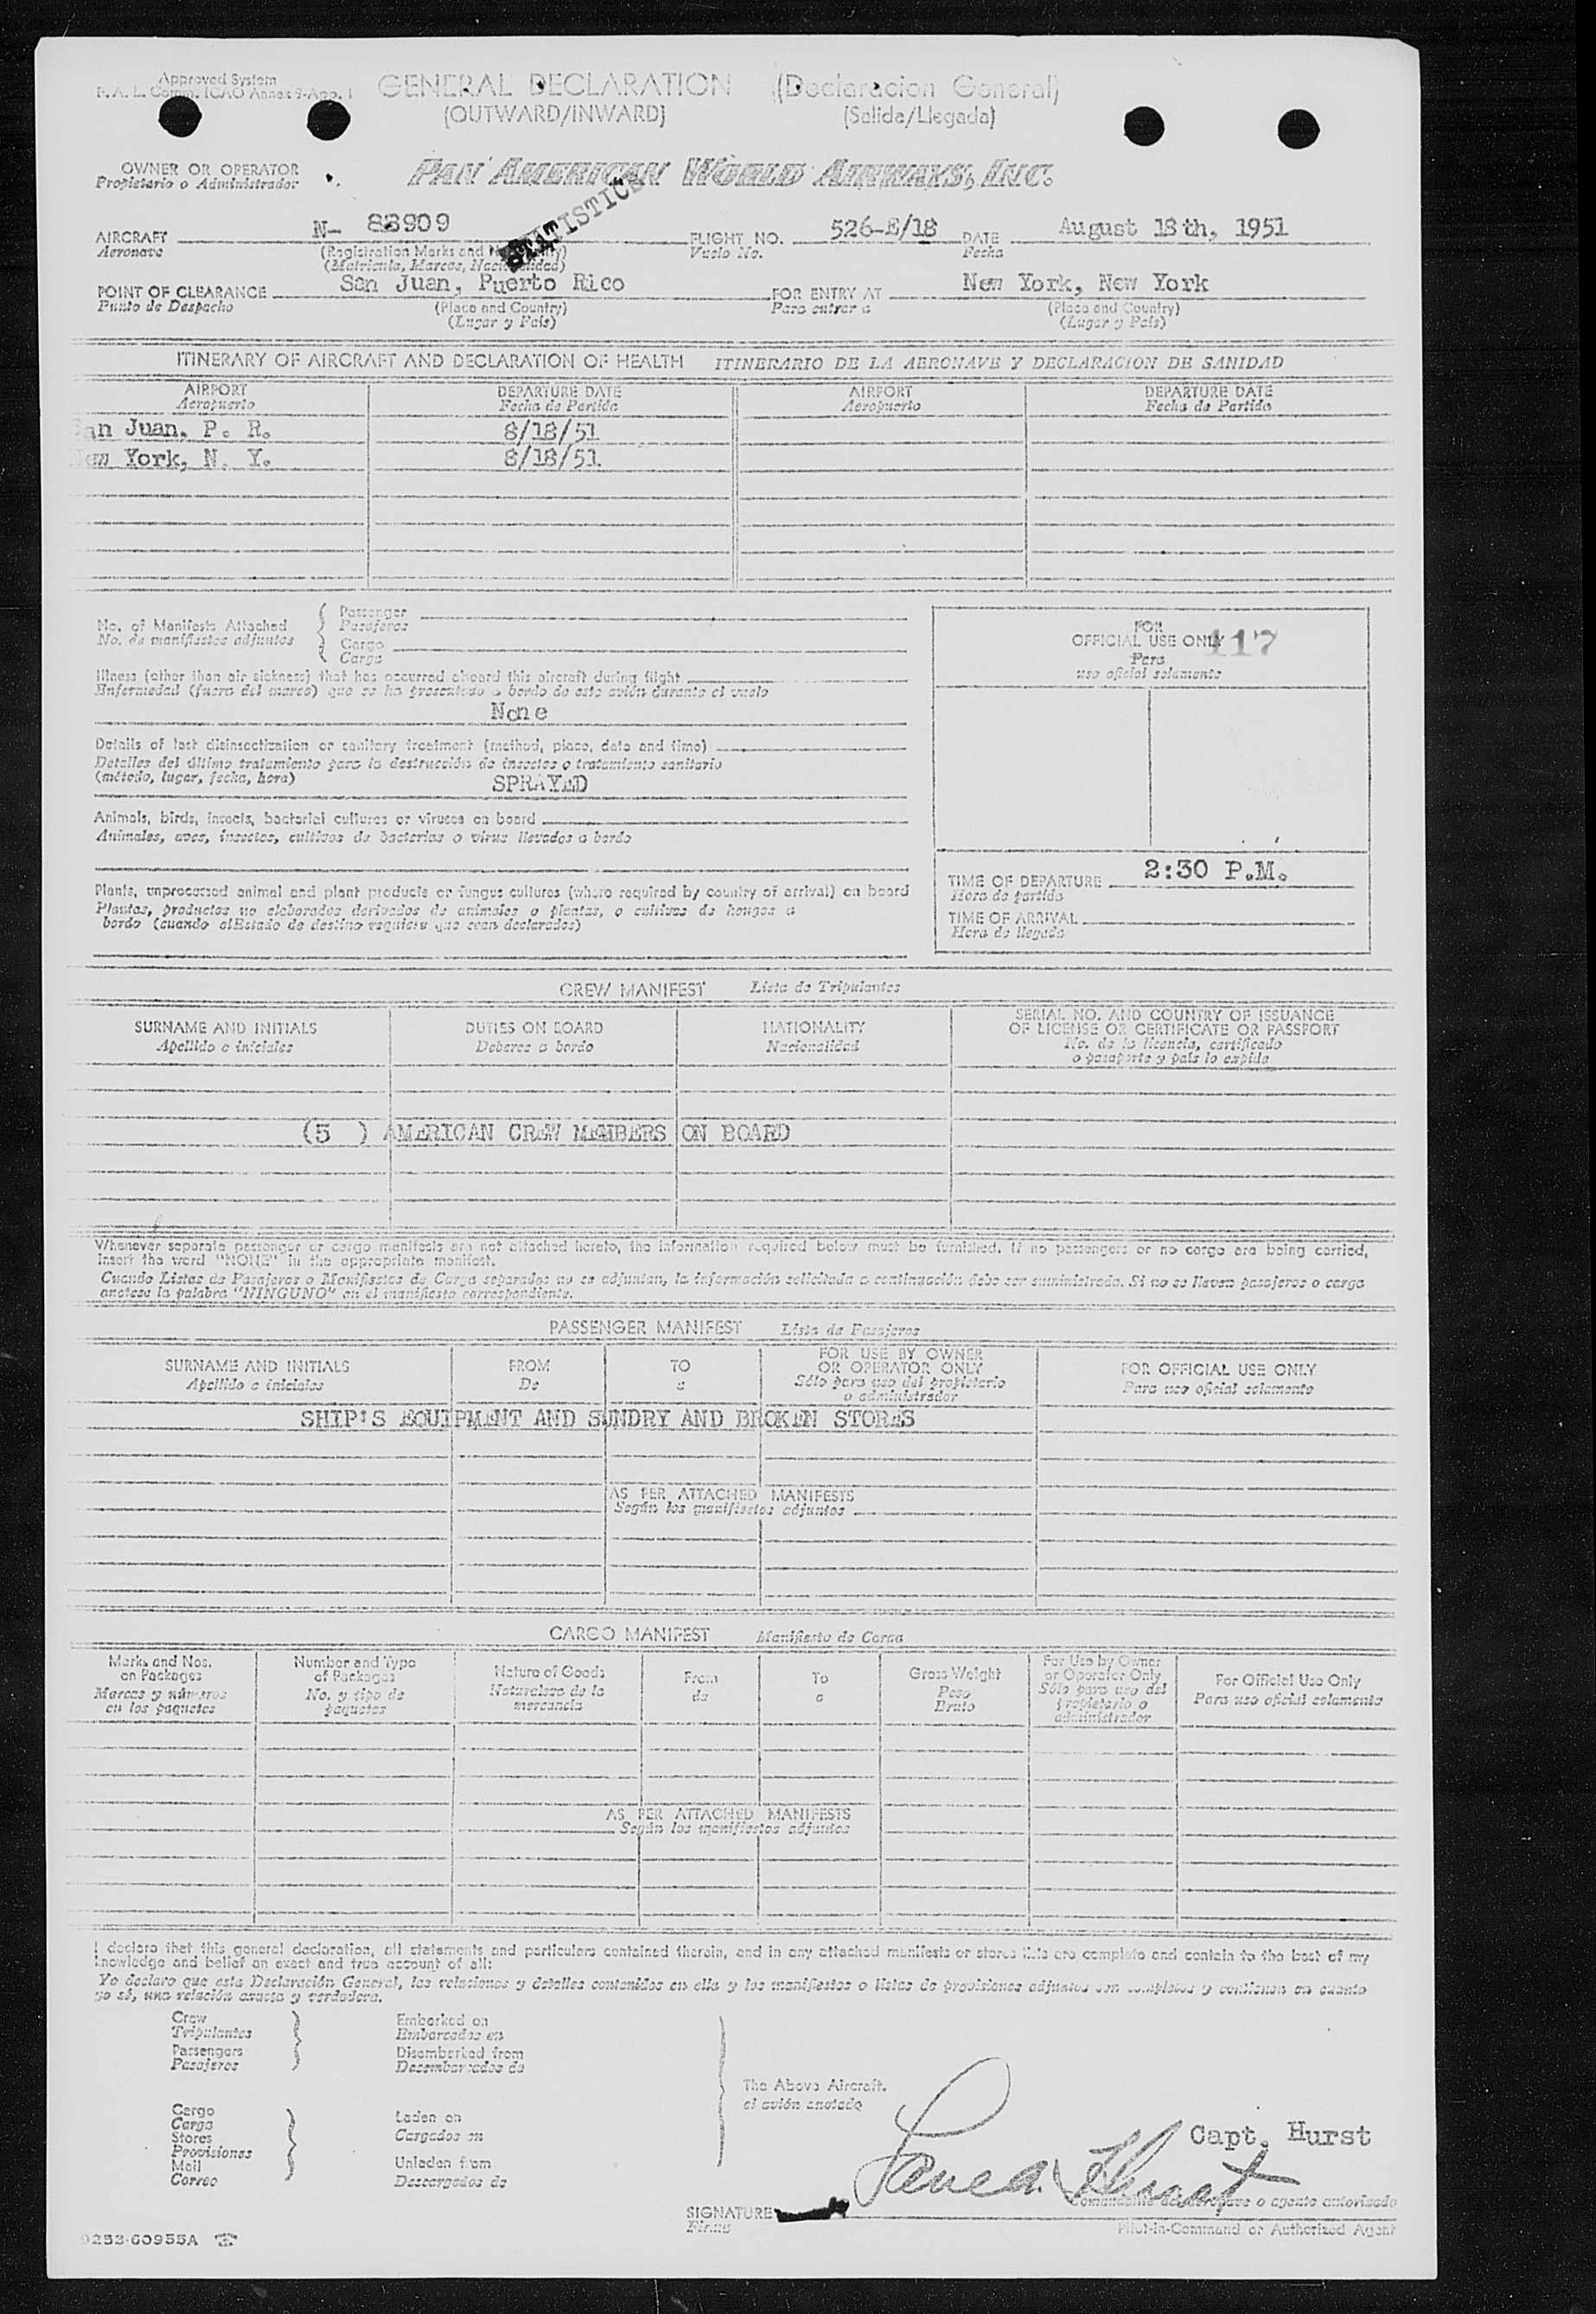 Approved System
F. A. L. Comm. ICAO Annex 9-App. 1
GENERAL DECLARATION (Declaracion General)
(OUTWARD/INWARD) (Salida/Llegada)
OWNER OR OPERATOR
Propietario o Administrador
PAN AMERICAN WORLD AIRWAYS, INC.
STATISTICS
AIRCRAFT N- 88909 FLIGHT NO. 526-E/18 DATE August 18th, 1951
Aeronave (Registration Marks and Nationality) Vuelo No. Fecha
(Matricula, Marcas, Nacionalidad)
POINT OF CLEARANCE San Juan, Puerto Rico FOR ENTRY AT New York, New York
Punto de Despacho (Place and Country) Para entrar a (Place and Country)
(Lugar y País) (Lugar y País)
ITINERARY OF AIRCRAFT AND DECLARATION OF HEALTH ITINERARIO DE LA AERONAVE Y DECLARACION DE SANIDAD
AIRPORT DEPARTURE DATE AIRPORT DEPARTURE DATE
Aeropuerto Fecha de Partida Aeropuerto Fecha de Partida
San Juan, P. R. 8/18/51
New York, N. Y. 8/18/51
No. of Manifests Attached
No. de manifiestos adjuntos
Passenger
Pasajeros
Cargo
Carga
Illness (other than air sickness) that has occurred aboard this aircraft during flight
Enfermedad (fuera del mareo) que se ha presentado a bordo de este avión durante el vuelo
None
Details of last disinsectization or sanitary treatment (method, place, date and time)
Detalles del último tratamiento para la destrucción de insectos o tratamiento sanitario
(método, lugar, fecha, hora)
SPRAYED
Animals, birds, insects, bacterial cultures or viruses on board
Animales, aves, insectos, cultivos de bacterias o virus llevados a bordo
Plants, unprocessed animal and plant products or fungus cultures (where required by country of arrival) on board
Plantas, productos no elaborados derivados de animales o plantas, o cultivos de hongos a
bordo (cuando el Estado de destino requiera que sean declarados)
FOR
OFFICIAL USE ONLY 117
Para
uso oficial solamente
TIME OF DEPARTURE 2:30 P.M.
Hora de partida
TIME OF ARRIVAL
Hora de llegada
CREW MANIFEST Lista de Tripulantes
SURNAME AND INITIALS DUTIES ON BOARD NATIONALITY SERIAL NO. AND COUNTRY OF ISSUANCE
OF LICENSE OR CERTIFICATE OR PASSPORT
Apellido e iniciales Deberes a bordo Nacionalidad No. de la licencia, certificado
o pasaporte y país lo expide
(5 ) AMERICAN CREW MEMBERS ON BOARD
Whenever separate passenger or cargo manifests are not attached hereto, the information required below must be furnished. If no passengers or no cargo are being carried,
insert the word "NONE" in the appropriate manifest.
Cuando Listas de Pasajeros o Manifiestos de Carga separados no se adjuntan, la información solicitada a continuación debe ser suministrada. Si no se llevan pasajeros o carga
anotese la palabra "NINGUNO" en el manifiesto correspondiente.
PASSENGER MANIFEST Lista de Pasajeros
SURNAME AND INITIALS FROM TO FOR USE BY OWNER
OR OPERATOR ONLY FOR OFFICIAL USE ONLY
Apellido e iniciales De a Sólo para uso del propietario
o administrador Para uso oficial solamente
SHIP'S EQUIPMENT AND SUNDRY AND BROKEN STORES
AS PER ATTACHED MANIFESTS
Según los manifiestos adjuntos
CARGO MANIFEST Manifiesto de Carga
Marks and Nos.
on Packages
Marcas y números
en los paquetes
Number and Type
of Packages
No. y tipo de
paquetes
Nature of Goods
Naturaleza de la
mercancia
From
de
To
a
Gross Weight
Peso
Bruto
For Use by Owner
or Operator Only
Sólo para uso del
propietario o
administrador
For Official Use Only
Para uso oficial solamente
AS PER ATTACHED MANIFESTS
Según los manifiestos adjuntos
I declare that this general declaration, all statements and particulars contained therein, and in any attached manifests or stores lists are complete and contain to the best of my
knowledge and belief an exact and true account of all:
Yo declaro que esta Declaración General, las relaciones y detalles contenidos en ella y los manifiestos o listas de provisiones adjuntos son completos y contienen en cuanto
yo sé, una relación exacta y verdadera.
Crew
Tripulantes
Passengers
Pasajeros
Embarked on
Embarcados en
Disembarked from
Desembarcados de
The Above Aircraft.
el avión anotado
Cargo
Carga
Stores
Provisiones
Mail
Correo
Laden on
Cargados en
Unladen from
Descargados de
Capt. Hurst
SIGNATURE
Firma
Comandante de aeronave o agente autorizado
Pilot-in-Command or Authorized Agent
0253-60955A